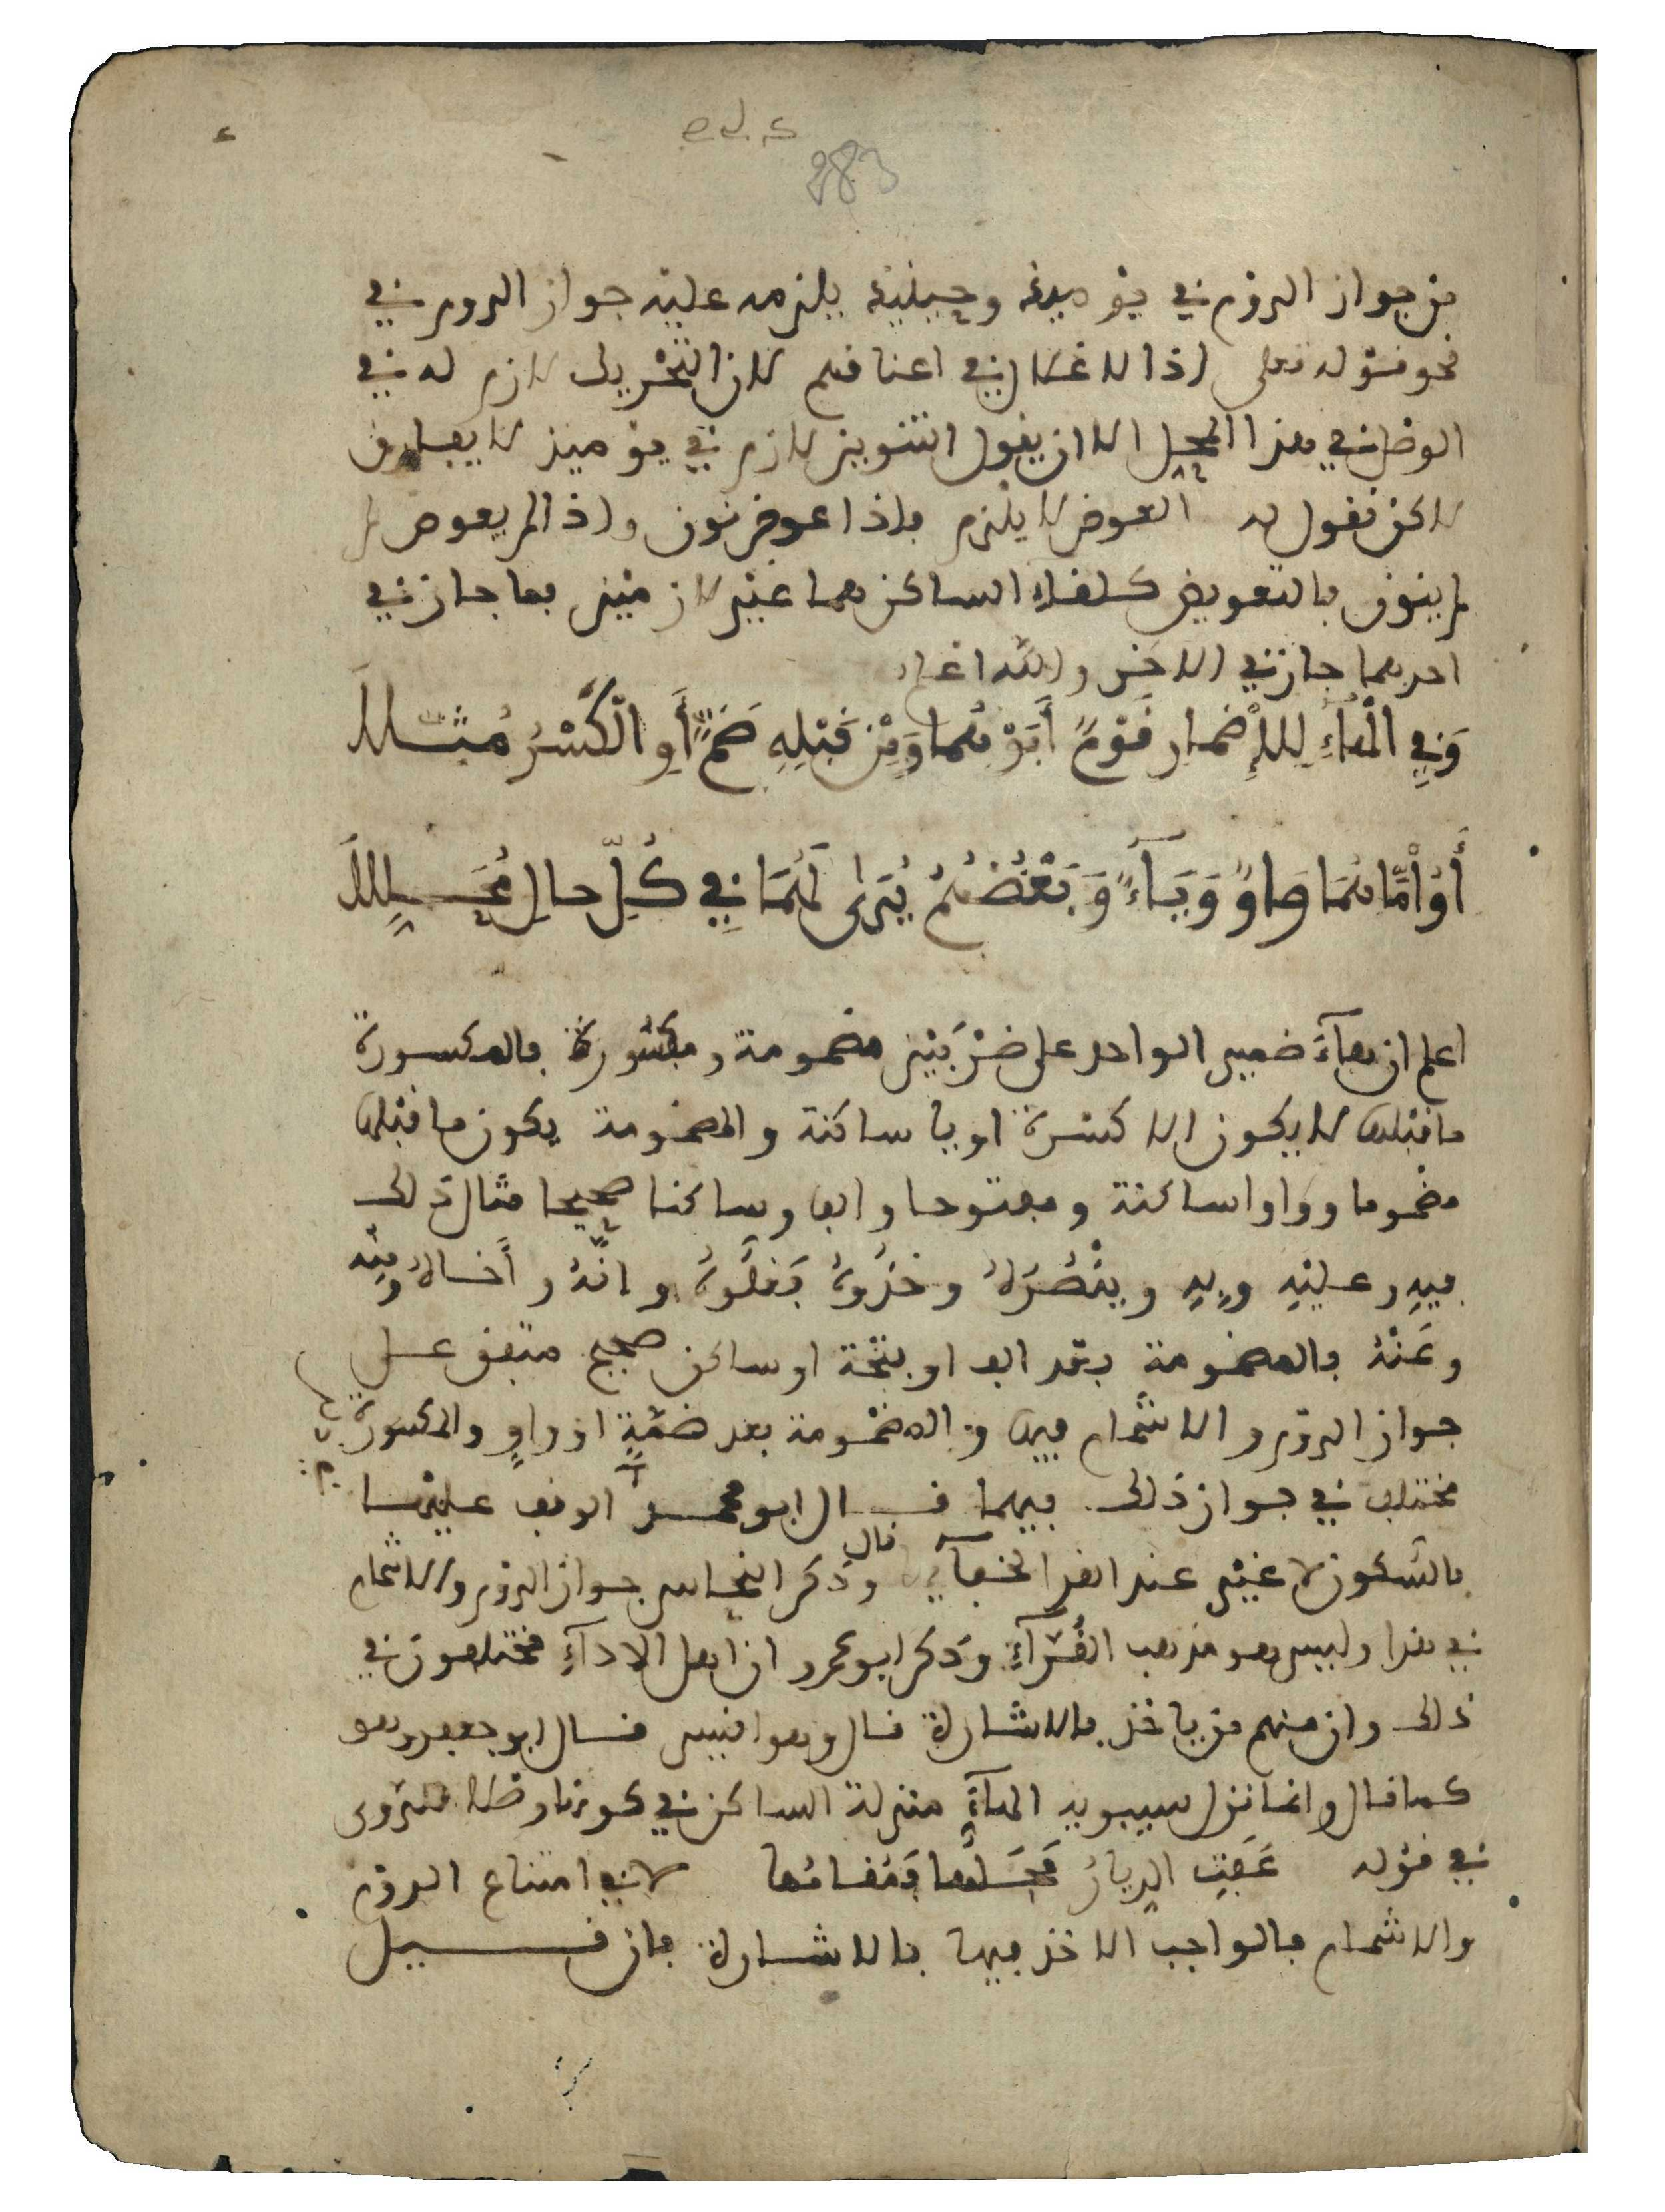 283
من جواز الروم في يومئذ وحينئذ يلزمه عليه جواز الروم في
نحو قوله تعلى إذ الاغلال في اعناقهم لان التحريك لازم له في
الوصل في هذا المحل الا ان يقول التنوين لازم في يومئذ لا يفارق
لاكن نقول له العوض لا يلزم فاذا عوض نون واذا لم يعوض لم
لم ينون فالتعويض كلقاء الساكن هما غير لازمين فما جاز في
احدهما جاز في الاخر والله اعلم
وَفِي الْهَاءِ لِلْإِضْمَارِ قَوْمٌ أَبَوْهُمَا وَمِنْ قَبْلِهِ ضَمٌّ أَوِ الْكَسْرُ مُثِّلَا
أَوُ امَّاهُمَا وَاوٌ وَيَاءٌ وَبَعْضُهُمْ يُرَى لَهُمَا فِي كُلِّ حَالٍ مُحَلِّلَا
اعلم ان هاءَ ضمير الواحد على ضرْبَيْن مضمومة ومكسُورة فالمكسورة
ما قبلها لا يكون الا كسْرة او يا ساكنة والمضمومة يكون ما قبلها
مضموما وواوا ساكنة ومفتوحا والفا وساكنا صحيحا مثال ذلك
فيهِ وعليْهِ وبِهِ وينْصُرُهُ وخذُوهُ فَغلُّوهُ وانَّهُ وأَخاهُ ومِنْه
وعَنْهُ فالمضمومة بعد الف او فتحة او ساكن صحيح متفق على
جواز الروْم والاشمام فيها والمضمومة بعد ضَمَّةٍ اوْ واوٍ والمكسورة
مختلف في جواز ذلك فيهما قال ابو محمد الوقف عليها
بالسّكون لا غيْر عند القراء لخفآئها قال وذكر النحاس جواز الروم والاشمام
في هذا وليس هو مذهب القُرّآءِ وذكر ابو عمرو ان اهل الاداءِ مختلفون في
ذلك وان منهم من ياخذ بالاشارة قال وهو اقيس قال ابو جعفر وهو
كما قال وانما نزل سيبويه الهآءَ منزلة الساكن في كونها وصلا للروى
في قوله عَفَتِ الديارُ مَحَلُّها فَمُقامُها لا في امتناع الروْم
والاشمام فالواجب الاخذ فيها بالاشارة فان قيل